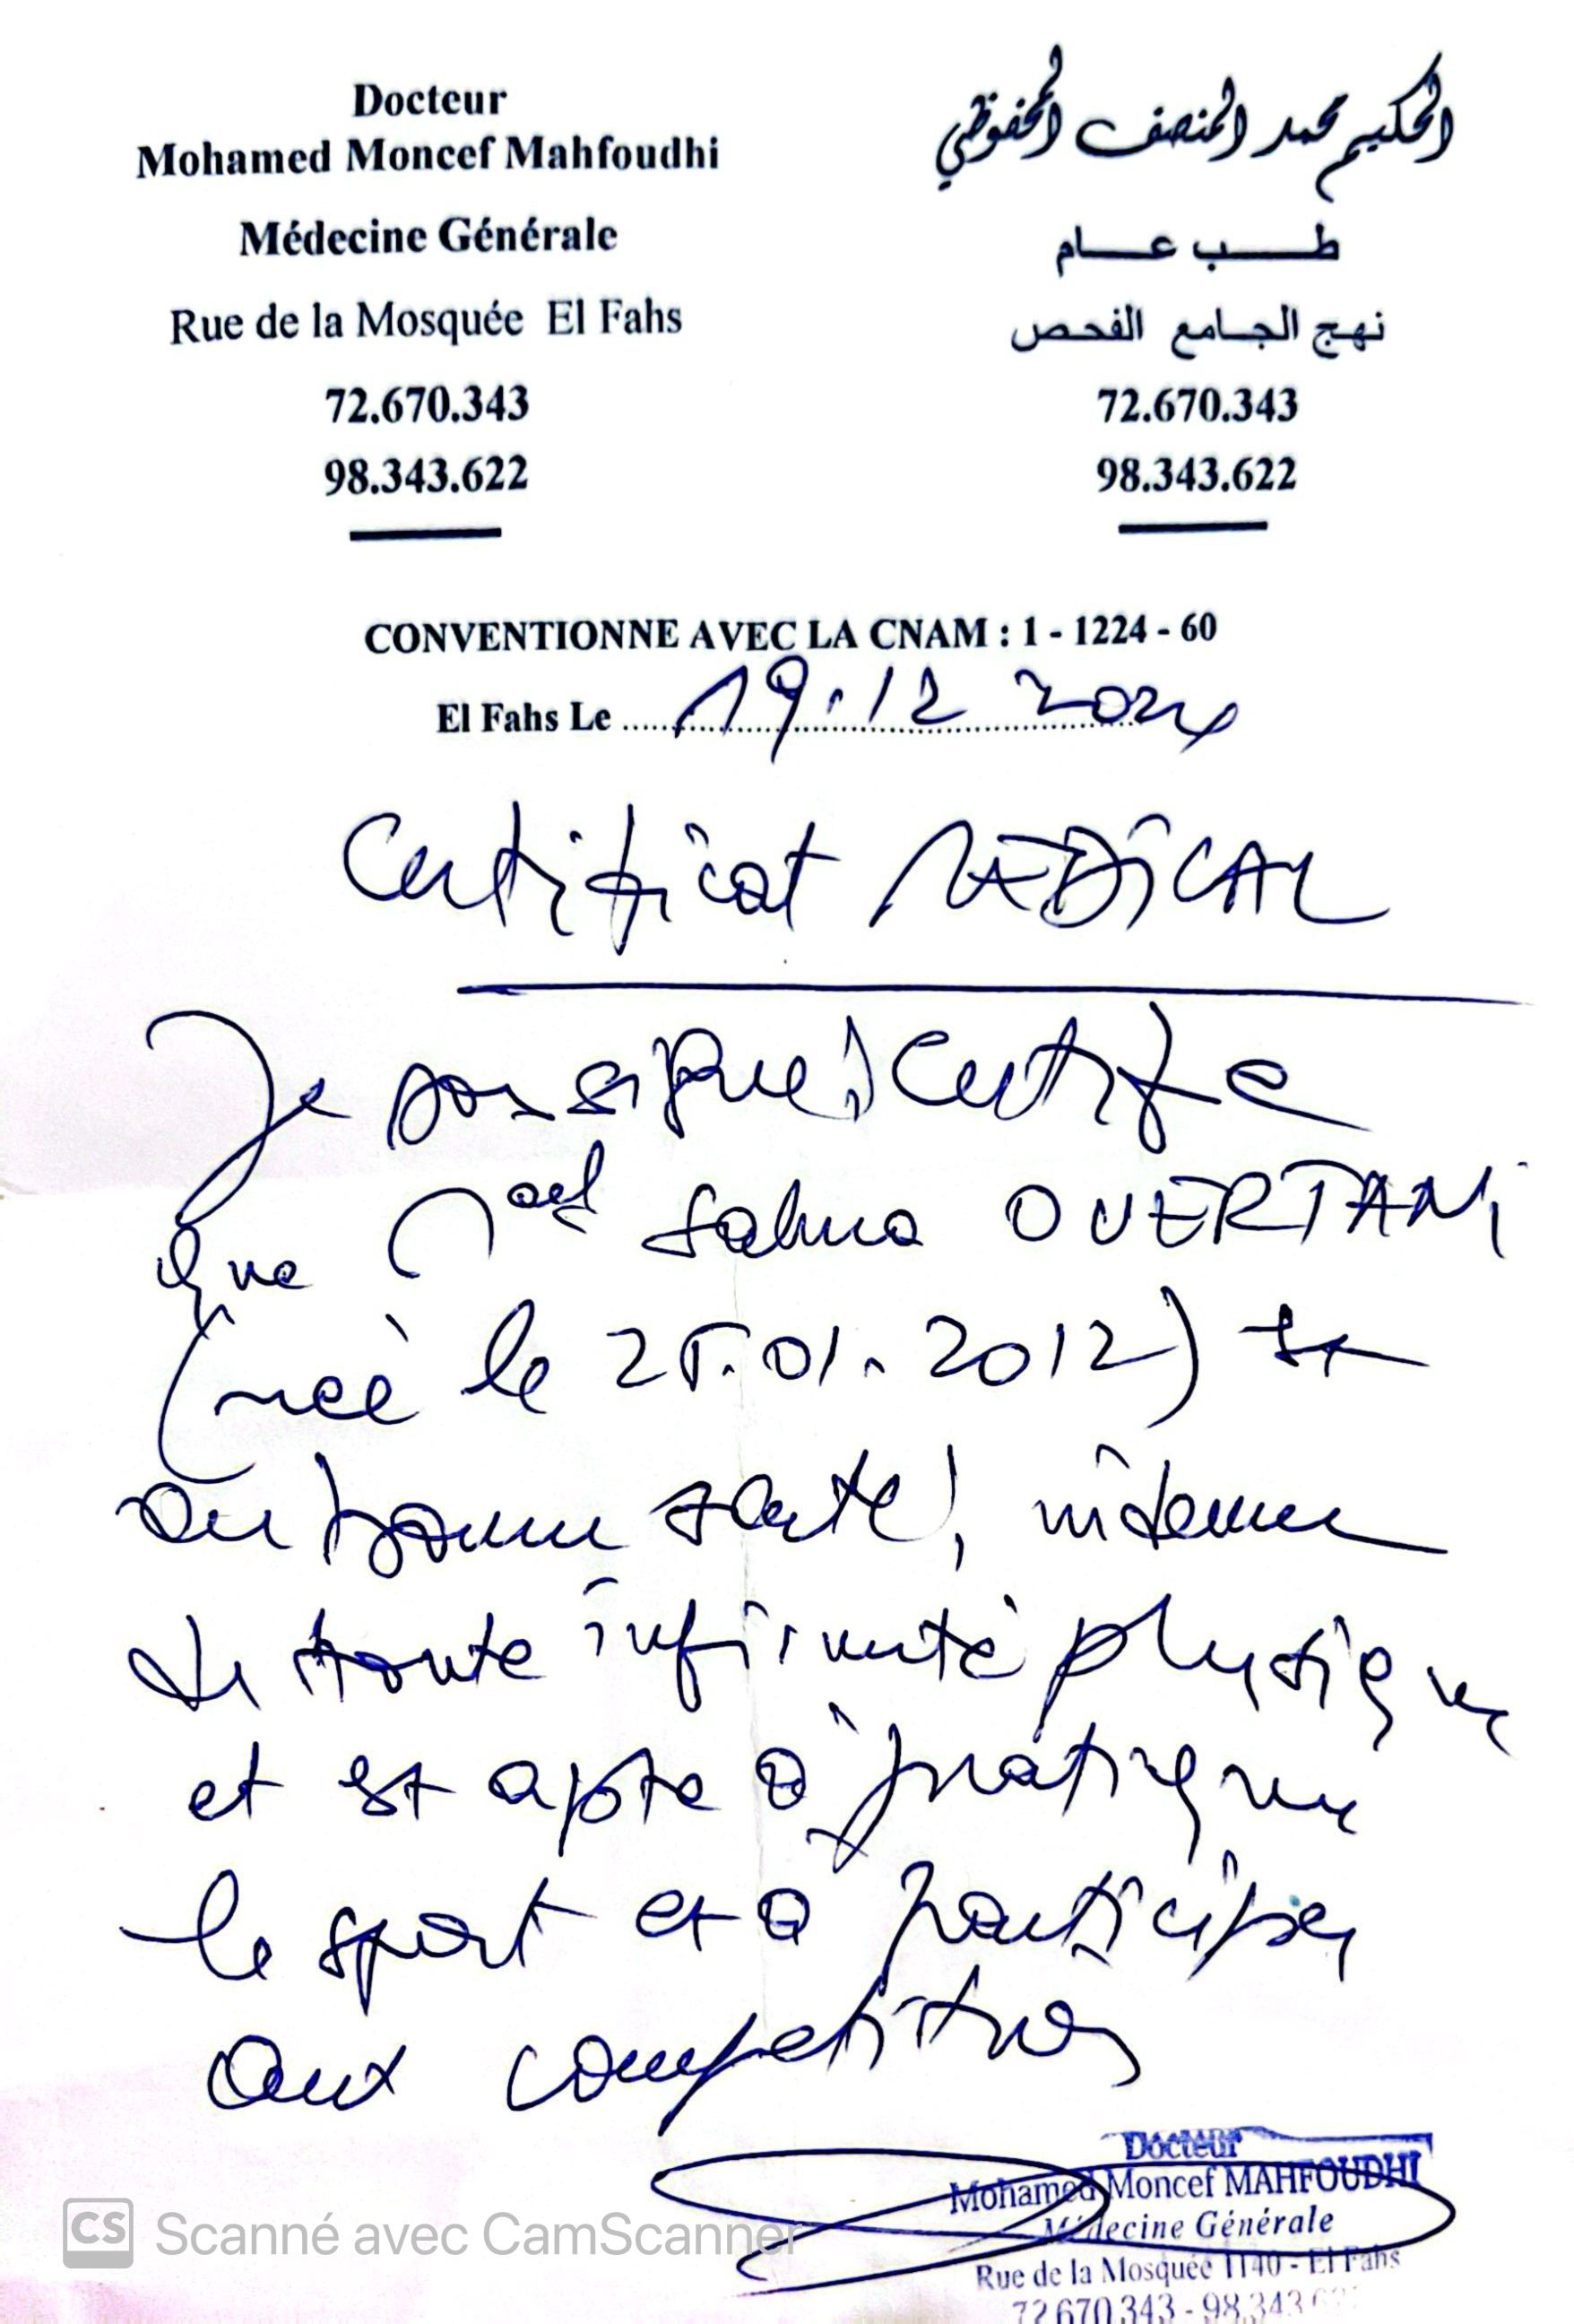 Docteur
Mohamed Moncef Mahfoudhi
Médecine Générale
Rue de la Mosquée El Fahs
72.670.343
98.343.622
الحكيم محمد المنصف المحفوظي
طب عام
نهج الجامع الفحص
72.670.343
98.343.622
CONVENTIONNE AVEC LA CNAM : 1 - 1224 - 60
El Fahs Le 19.12 2024
Certificat MEDICAL
Je soussigné certifie
que Salma OUERTANI
(née le 25.01.2012) est
en bonne santé, indemne
de toute infirmité physique
et est apte à pratiquer
le sport et à participer
aux compétitions
Docteur
Mohamed Moncef MAHFOUDHI
Médecine Générale
Rue de la Mosquée 1140 - El Fahs
72.670.343 - 98.343.622
CS Scanné avec CamScanner